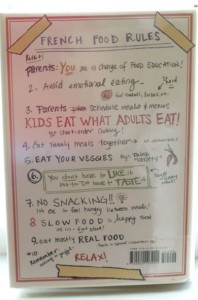 FRENCH FOOD RULES
Parents: You are in charge of Food Education!
2. Avoid emotional eating.
3. Parents schedule meals & menus
KIDS EAT WHAT ADULTS EAT!
no short-order cooking!
4. Eat family meals together
5. EAT YOUR VEGGIES
6. You don't have to LIKE it
but you do have to TASTE
7. NO SNACKING!!
it's ok to feel hungry between meals!
8 SLOW FOOD is happy food
9. eat mostly REAL FOOD
#10
Remember
RELAX!